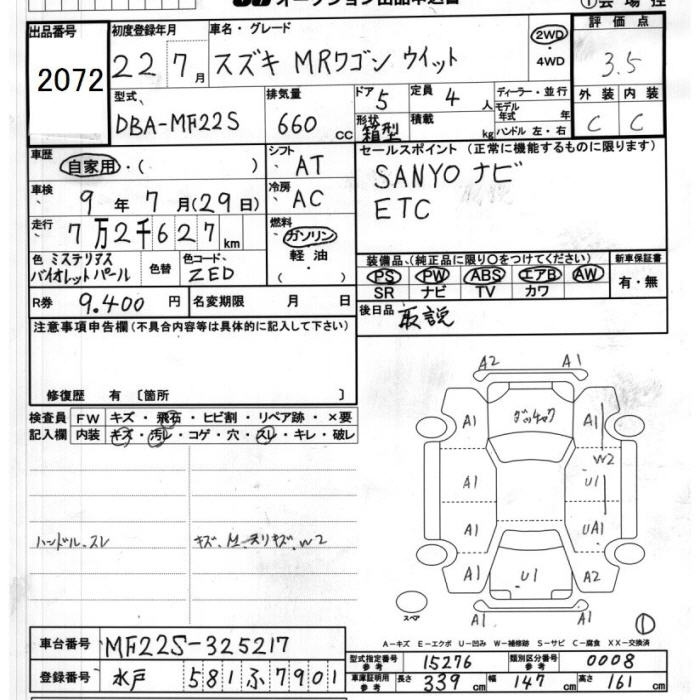 オークション出品申込書 ①会場控
出品番号 初度登録年月 車名・グレード 2WD 評価点
2072 22 7月 スズキ MRワゴン ウイット ・4WD 3.5
型式 排気量 ドア 5 定員 4人 ディーラー・並行 外装 内装
DBA-MF22S 660cc 形状 箱型 積載 kg モデル年式 年 ハンドル 左・右 C C
車歴 自家用・( ) シフト AT セールスポイント (正常に機能するものに限ります)
車検 9年 7月(29日) 冷房 AC SANYOナビ
走行 7万2千627km 燃料 ガソリン ETC
色 ミステリアスバイオレットパール 色替 色コード ZED 軽油 ( ・ ) 装備品(純正品に限り○をつけてください) 新車保証書
PS PW ABS エアB AW 有・無
R券 9.400円 名変期限 月 日 SR ナビ TV カワ
注意事項申告欄(不具合内容等は具体的に記入して下さい) 後日品 取説
修復歴 有 [箇所 ]
検査員 FW キズ・飛石・ヒビ割・リペア跡・×要
記入欄 内装 キズ・汚レ・コゲ・穴・スレ・キレ・破レ
ハンドル.スレ
A2 A1
A1 A1
W2
A1 U1
A1 UA1
A1 U1 A2
スペア A1 ①
A-キズ E-エクボ U-凹み W-補修跡 S-サビ C-腐食 XX-交換済
車台番号 MF22S-325217
登録番号 水戸 581 ふ 7901
型式指定番号 参考 15276 類別区分番号 参考 0008
車庫証明用 参考 長さ 339cm 幅 147cm 高さ 161cm